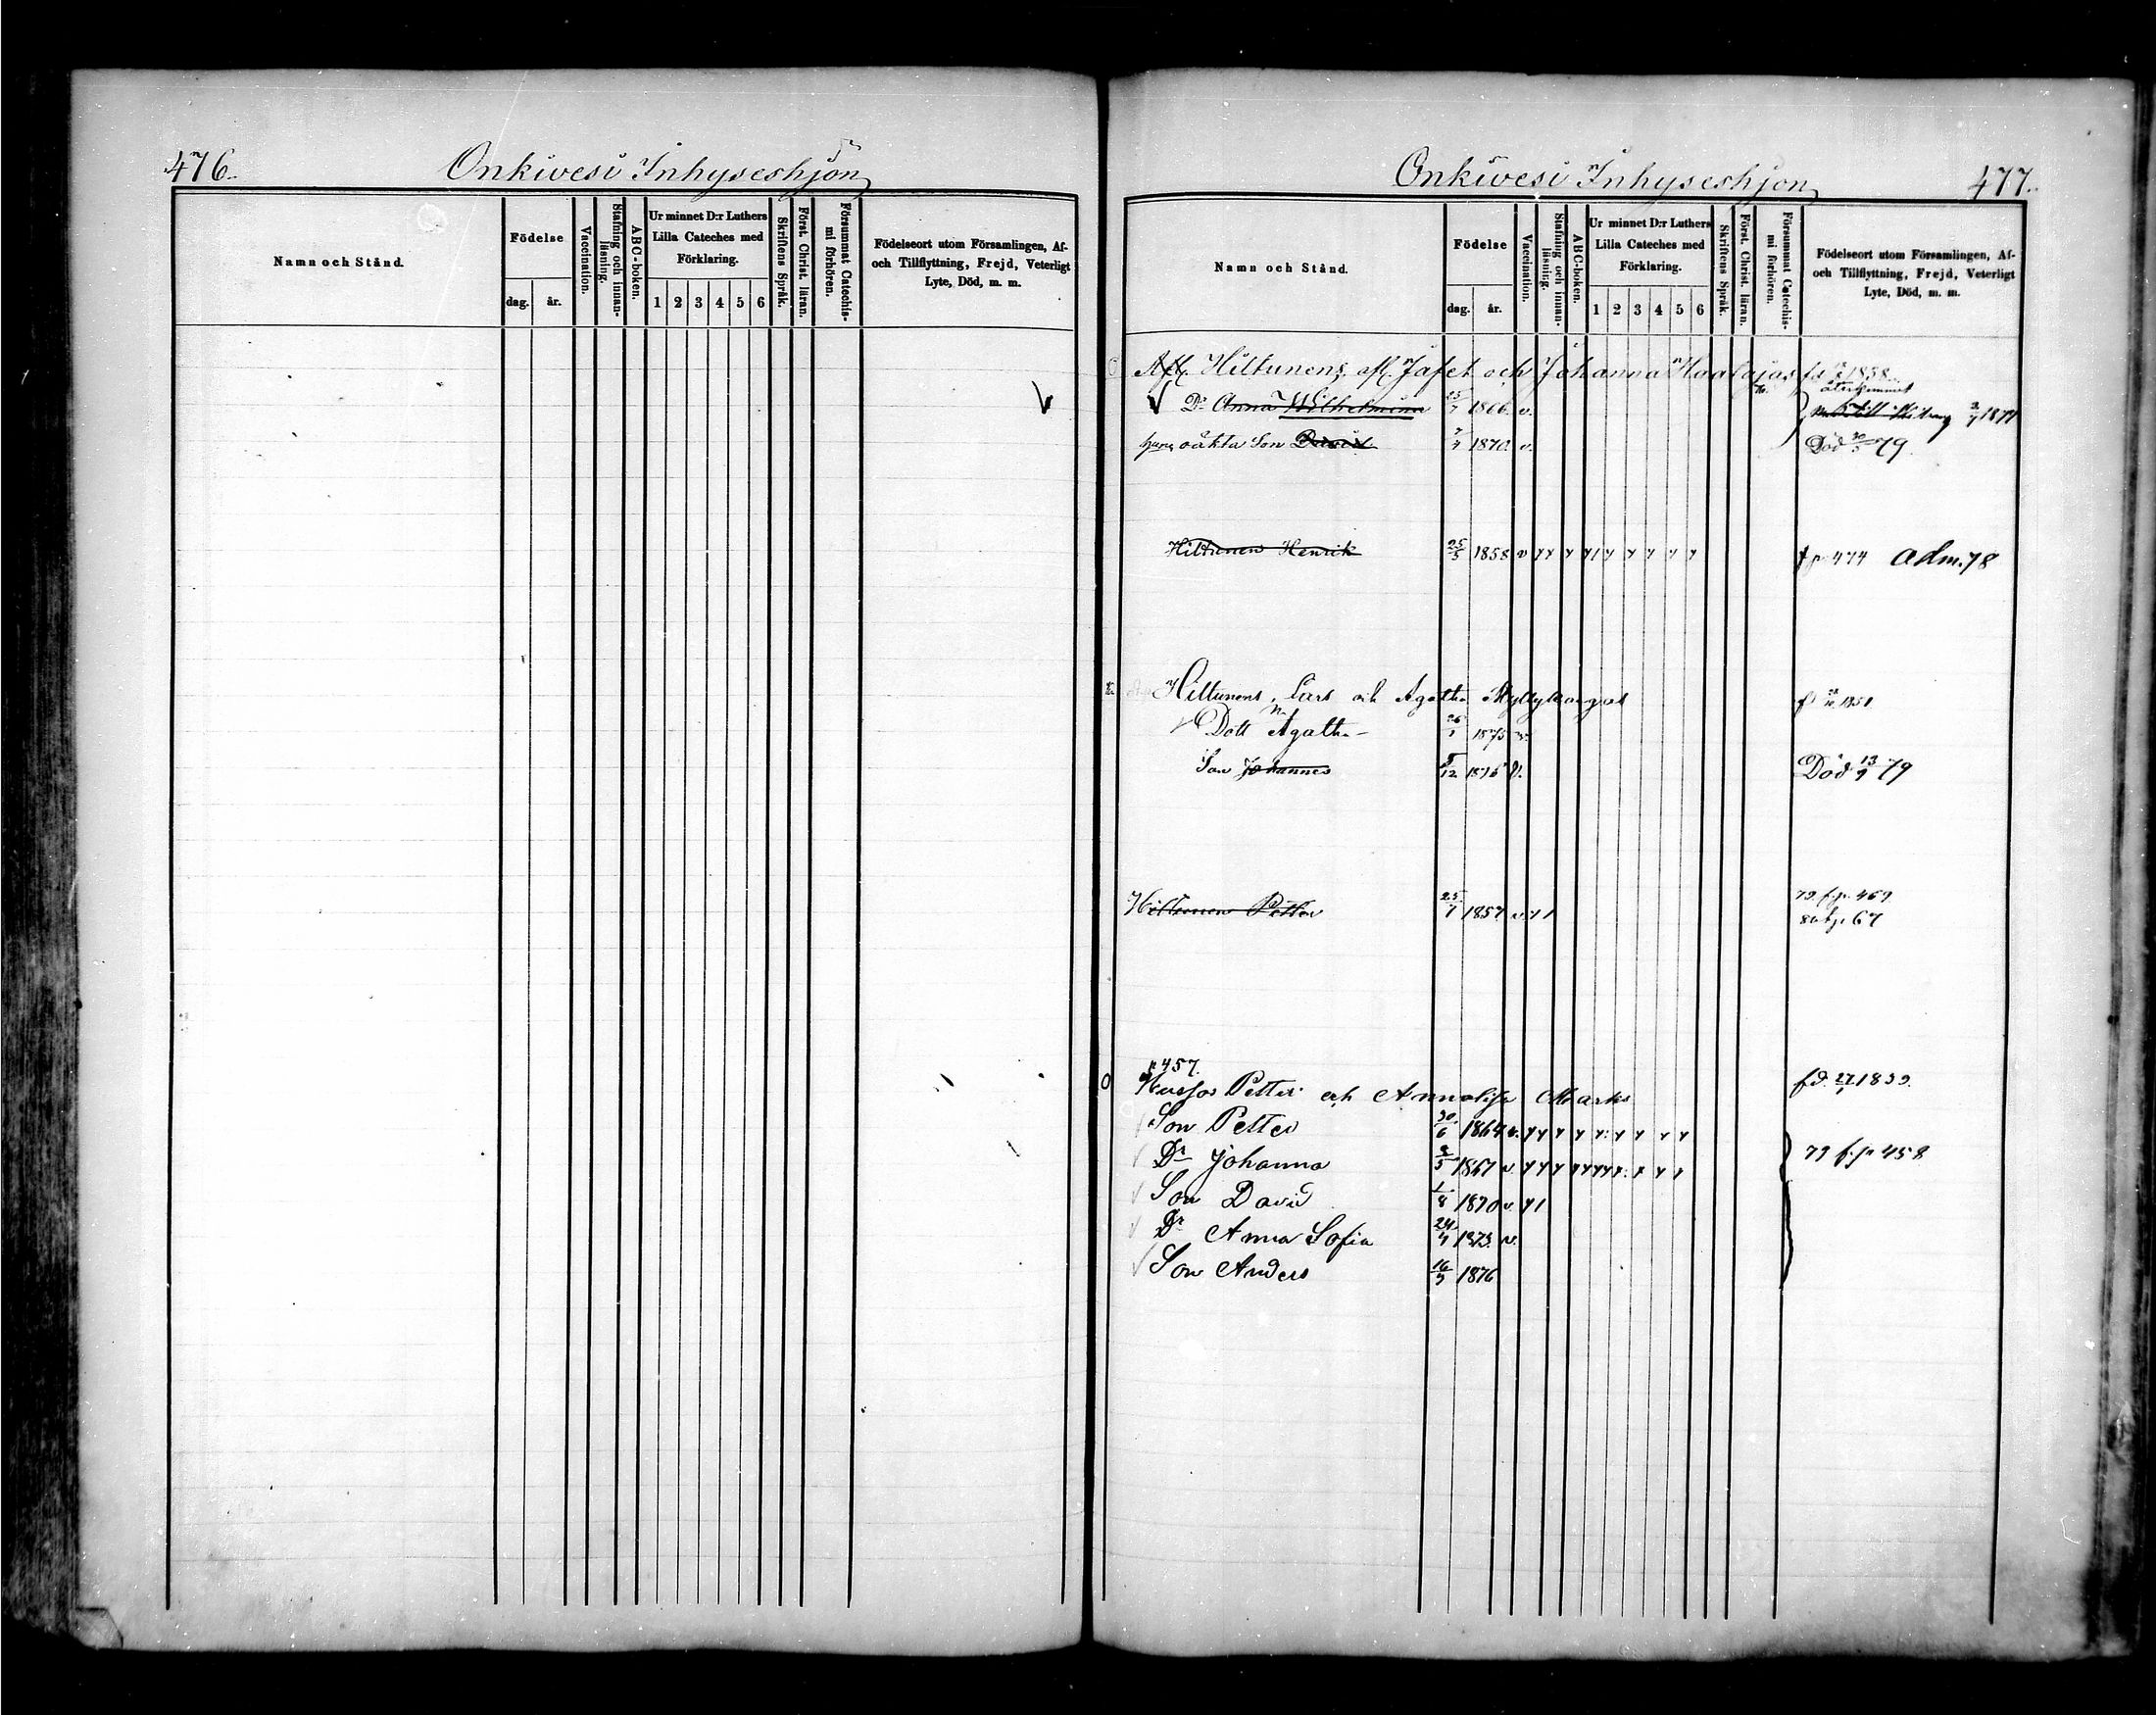 476.
Onkivesi Inhyseshjon
Namn och Stånd.
Födelse
dag. år.
Vaccination.
Stafning och innan-läsning.
ABC-boken.
Ur minnet D:r Luthers
Lilla Cateches med
Förklaring.
1 2 3 4 5 6
Skriftens Språk.
Först. Christ. läran.
Försummat Catechis-mi förhören.
Födelseort utom Församlingen, Af-
och Tillflyttning, Frejd, Veterligt
Lyte, Död, m. m.
Onkivesi Inhyseshjon
477.
Namn och Stånd.
Födelse
dag. år.
Vaccination.
Stafning och innan-läsning.
ABC-boken.
Ur minnet D:r Luthers
Lilla Cateches med
Förklaring.
1 2 3 4 5 6
Skriftens Språk.
Först. Christ. läran.
Försummat Catechis-mi förhören.
Födelseort utom Församlingen, Af-
och Tillflyttning, Frejd, Veterligt
Lyte, Död, m. m.
Afl. Hiltunens, afl. Jafet och Johanna 1838.
återkommit
Dr Anna Wilhelmina 1866. v.
hans oäkta Son David 1870. v. Död 79
Hiltunen Henrik 25/5 1858 v p 474 adm. 78
Hiltunens, Lars och Agatha Myllykangas
Dott Agatha 26/1 1875 v.
Son Johannes 5/12 1876 v. Död 13/9 79
Hiltunen Petter 25/7 1857 v. 79 f.p. 469
80 t.p. 67
p 457.
Petter och Annalisa Marks fd. 27/1 1839.
Son Petter 30/6 1864 v.
Dr Johanna 2/5 1867 v. 79 f.p. 458
Son David 1/8 1870 v.
Dr Anna Sofia 24/4 1873 v.
Son Anders 16/9 1876